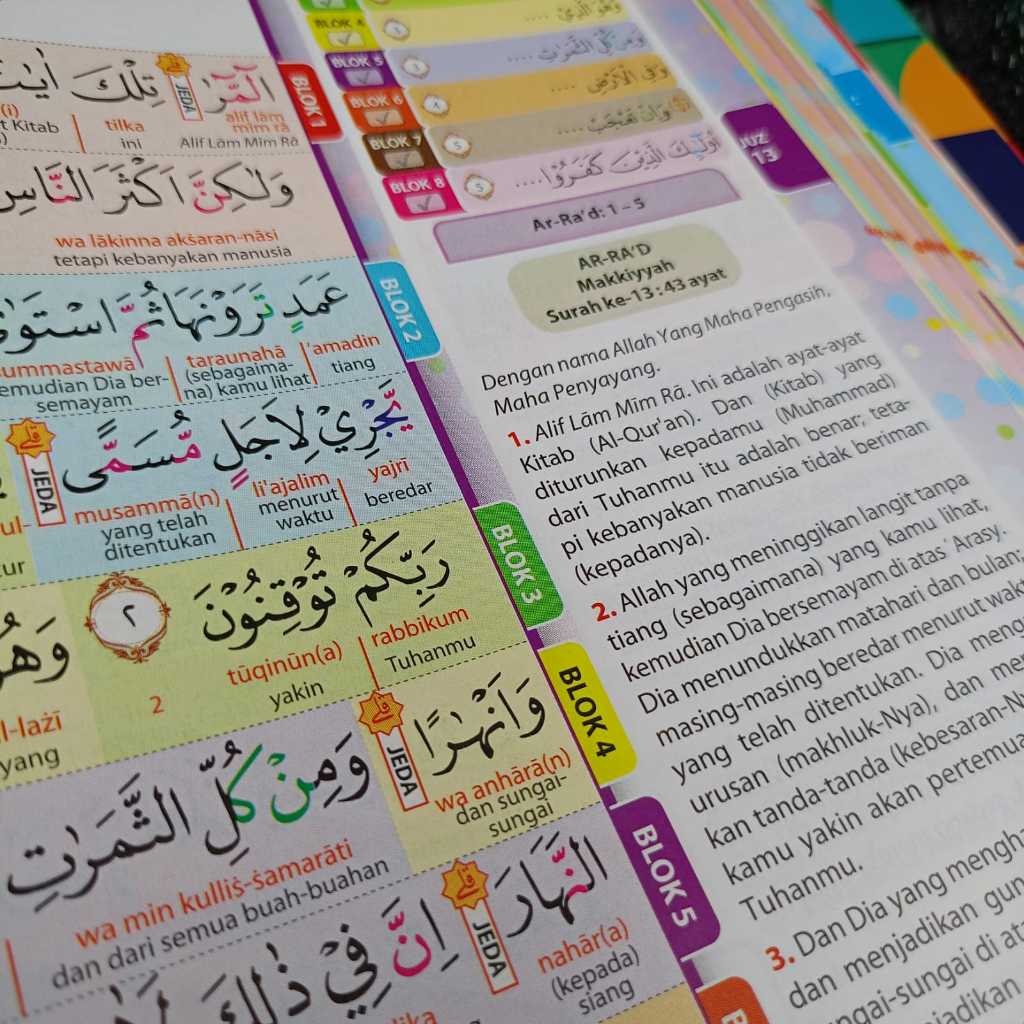 الٓمّٓرٰ
تِلْكَ
اٰيٰتُ
JEDA
BLOK 1
(i)
tilka
alif lām
mīm rā
Kitab
ini
Alif Lām Mīm Rā
وَلٰكِنَّ اَكْثَرَ النَّاسِ
wa lākinna akṡaran-nāsi
tetapi kebanyakan manusia
عَمَدٍ تَرَوْنَهَا ثُمَّ اسْتَوٰى
BLOK 2
summastawā
taraunahā
‘amadin
kemudian Dia ber-
semayam
(sebagaima-
na) kamu lihat
tiang
يَّجْرِيْ لِاَجَلٍ مُّسَمًّى
قلى
JEDA
musammā(n)
li'ajalim
yajrī
yang telah
ditentukan
menurut
waktu
beredar
رَبِّكُمْ تُوْقِنُوْنَ
٢
BLOK 3
2
tūqinūn(a)
rabbikum
yakin
Tuhanmu
وَاَنْهٰرًا
قلى
JEDA
BLOK 4
وَهُوَ
l-lażī
yang
wa anhārā(n)
dan sungai-
sungai
وَمِنْ كُلِّ الثَّمَرٰتِ
wa min kulliṡ-ṡamarāti
dan dari semua buah-buahan
BLOK 5
النَّهَارَ
قلى
JEDA
اِنَّ فِيْ ذٰلِكَ
nahār(a)
(kepada)
siang
BLOK 4
وَهُوَ الَّذِيْ ....
BLOK 5
وَمِنْ كُلِّ الثَّمَرٰتِ ....
BLOK 6
وَفِى الْاَرْضِ ....
BLOK 7
وَاِنْ تَعْجَبْ ....
BLOK 8
اُولٰۤىِٕكَ الَّذِيْنَ كَفَرُوْا ....
JUZ
13
Ar-Ra‘d: 1 – 5
AR-RA‘D
Makkiyyah
Surah ke-13 : 43 ayat
Dengan nama Allah Yang Maha Pengasih,
Maha Penyayang.
1. Alif Lām Mīm Rā. Ini adalah ayat-ayat
Kitab (Al-Qur'an). Dan (Kitab) yang
diturunkan kepadamu (Muhammad)
dari Tuhanmu itu adalah benar; teta-
pi kebanyakan manusia tidak beriman
(kepadanya).
2. Allah yang meninggikan langit tanpa
tiang (sebagaimana) yang kamu lihat,
kemudian Dia bersemayam di atas ‘Arasy.
Dia menundukkan matahari dan bulan;
masing-masing beredar menurut wak
yang telah ditentukan. Dia meng
urusan (makhluk-Nya), dan men
kan tanda-tanda (kebesaran-N
kamu yakin akan pertemua
Tuhanmu.
3. Dan Dia yang mengha
dan menjadikan gun
ngai-sungai di ata